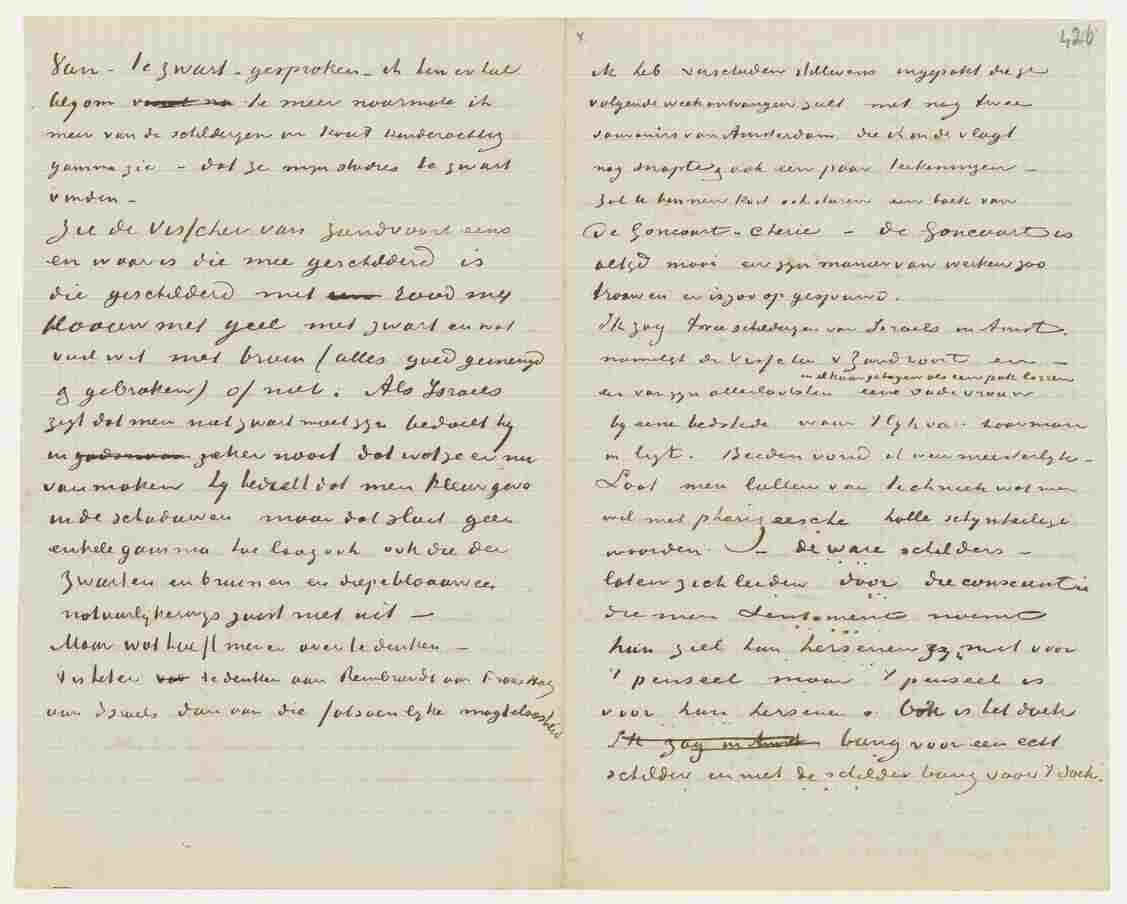 Van – te zwart – gesproken – ik ben er tal
te meer naarmate ik
meer van de schilderijen in kwast kinderachtig
gamma zie – dat ze mijn studies te zwart
vinden –
Zie de Visscher van Zandvoort eens
en waar is die mee geschilderd is
die geschilderd met rood met
blaauw met geel met zwart en wat
vuil wit met bruin (alles goed gemengd
& gebroken) of niet. Als Israels
zegt dat men niet zwart moet zijn bedoelt hij
zeker nooit dat wat ze er nu
van maken hij bedoelt dat men kleur geve
in de schaduwen maar dat sluit geen
enkele gamma hoe laag ook ook die der
zwarten en bruinen en diepe blaauwen
natuurlijkerwijs juist niet uit –
Maar wat hoeft men er over te denken –
't is beter te denken aan Rembrandt aan Frans Hals
aan Israels dan aan die fatsoenlijke magteloosheid
4 426
ik heb verscheiden stillevens ingepakt die ge
volgende week ontvangen zult met nog twee
souvenirs van Amsterdam die ik in de vlugt
nog snapte & ook een paar teekeningen –
Zal U binnen kort ook sturen een boek van
De Goncourt – Cherie – de Goncourt is
altijd mooi en zijn manier van werken zoo
trouw en er is zoo op gezwoegd.
Ik zag twee schilderijen van Israels in Amst.
namelijk de Visscher v Zandvoort en –
in elkaar gebogen als een pak lorren
een van zijn allerlaatsten eene oude vrouw
bij eene bedstede waar 't lijk van haar man
in ligt. Beiden vond ik weer meesterlijk –
Laat men lullen van techniek wat men
wil met pharizeesche holle schijnheilige
woorden – de ware schilders –
laten zich leiden door die conscientie
die men Sentiment noemt
hun ziel hun hersenen zijn niet voor
't penseel maar 't penseel is
voor hun hersenen. Ook is het doek
Ik zag in Amst bang voor een echt
schilder en niet de schilder bang voor 't doek.